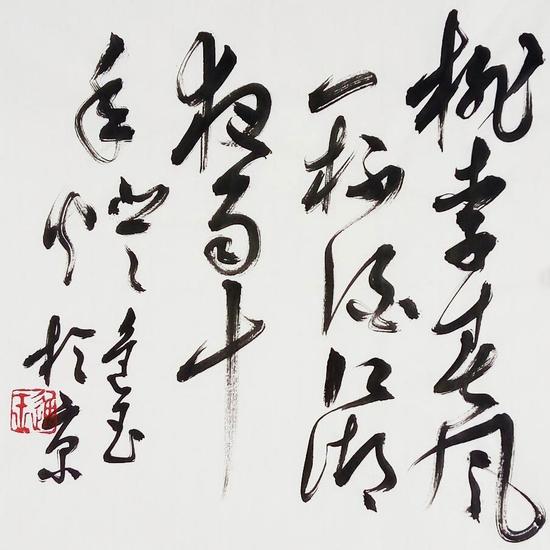 桃李春风
一杯酒江湖
夜雨十
年燈
玉
於京